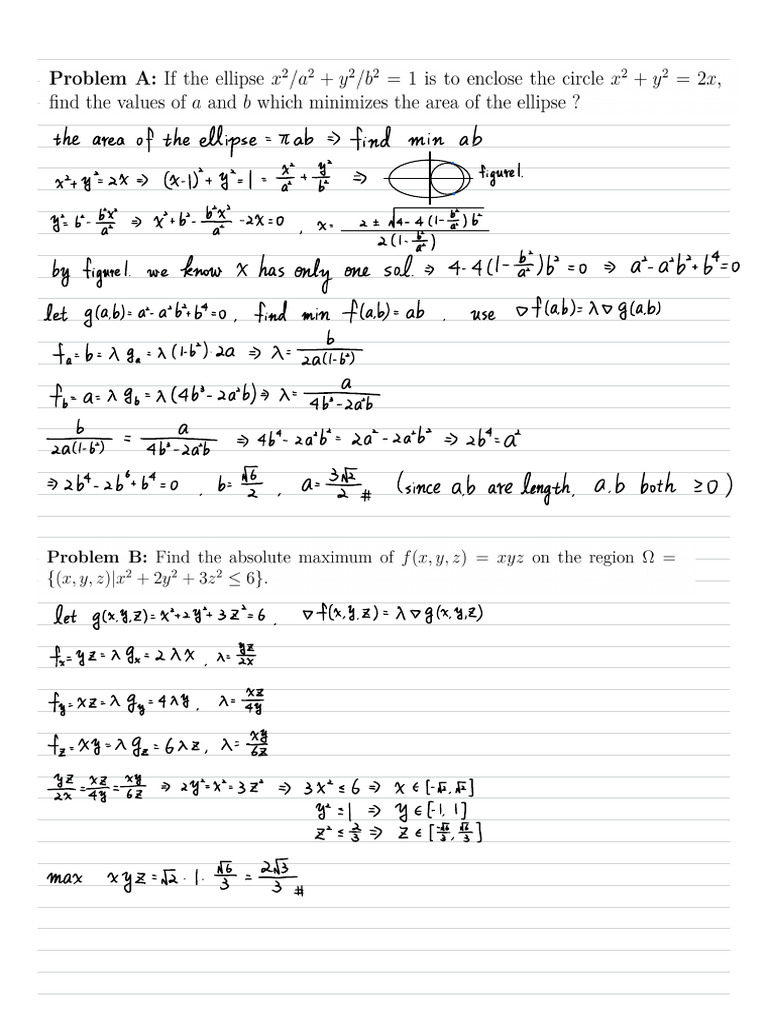 Problem A: If the ellipse x²/a² + y²/b² = 1 is to enclose the circle x² + y² = 2x,
find the values of a and b which minimizes the area of the ellipse ?
the area of the ellipse = πab ⇒ find min ab
x²+y²=2x ⇒ (x-1)²+y²=1 = x²/a² + y²/b² ⇒ figure1.
y²=b²-b²x²/a² ⇒ x²+b²-b²x²/a²-2x=0, x=(2±√(4-4(1-b²/a²)b²))/(2(1-b²/a²))
by figure1. we know x has only one sol. ⇒ 4-4(1-b²/a²)b²=0 ⇒ a²-a²b²+b⁴=0
let g(a,b)=a²-a²b²+b⁴=0, find min f(a,b)=ab. use ∇f(a,b)=λ∇g(a,b)
fₐ=b=λgₐ=λ(1-b²)·2a ⇒ λ=b/(2a(1-b²))
f_b=a=λg_b=λ(4b³-2a²b) ⇒ λ=a/(4b³-2a²b)
b/(2a(1-b²)) = a/(4b³-2a²b) ⇒ 4b⁴-2a²b²=2a²-2a²b² ⇒ 2b⁴=a²
⇒ 2b⁴-2b⁶+b⁴=0, b=√6/2, a=3√2/2 # (since a,b are length, a,b both ≥0)
Problem B: Find the absolute maximum of f(x, y, z) = xyz on the region Ω =
{(x, y, z)|x² + 2y² + 3z² ≤ 6}.
let g(x,y,z)=x²+2y²+3z²=6, ∇f(x,y,z)=λ∇g(x,y,z)
fₓ=yz=λgₓ=2λx, λ=yz/2x
f_y=xz=λg_y=4λy, λ=xz/4y
f_z=xy=λg_z=6λz, λ=xy/6z
yz/2x=xz/4y=xy/6z ⇒ 2y²=x²=3z² ⇒ 3x²≤6 ⇒ x∈[-√2,√2]
y²=1 ⇒ y∈[-1,1]
z²≤2/3 ⇒ z∈[-√6/3,√6/3]
max xyz=√2·1·√6/3=2√3/3 #